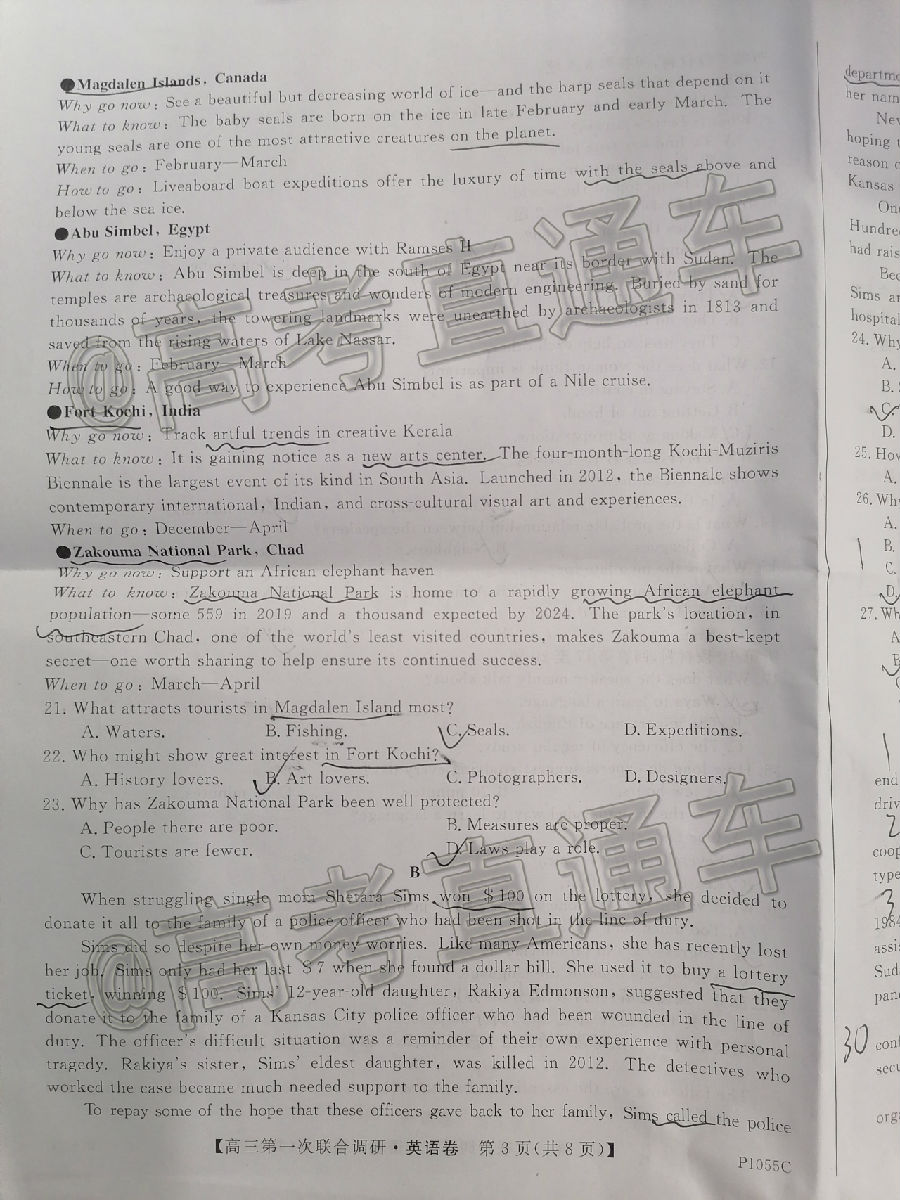 ●Magdalen Islands, Canada
Why go now: See a beautiful but decreasing world of ice—and the harp seals that depend on it
What to know: The baby seals are born on the ice in late February and early March. The
young seals are one of the most attractive creatures on the planet.
When to go: February—March
How to go: Liveaboard boat expeditions offer the luxury of time with the seals above and
below the sea ice.
●Abu Simbel, Egypt
Why go now: Enjoy a private audience with Ramses II
What to know: Abu Simbel is deep in the south of Egypt near its border with Sudan. The
temples are archaeological treasures and wonders of modern engineering. Buried by sand for
thousands of years, the towering landmarks were unearthed by archaeologists in 1813 and
saved from the rising waters of Lake Nassar.
When to go: February—March
How to go: A good way to experience Abu Simbel is as part of a Nile cruise.
●Fort Kochi, India
Why go now: Track artful trends in creative Kerala
What to know: It is gaining notice as a new arts center. The four-month-long Kochi-Muziris
Biennale is the largest event of its kind in South Asia. Launched in 2012, the Biennale shows
contemporary international, Indian, and cross-cultural visual art and experiences.
When to go: December—April
●Zakouma National Park, Chad
Why go now: Support an African elephant haven
What to know: Zakouma National Park is home to a rapidly growing African elephant
population—some 559 in 2019 and a thousand expected by 2024. The park's location, in
southeastern Chad, one of the world's least visited countries, makes Zakouma a best-kept
secret—one worth sharing to help ensure its continued success.
When to go: March—April
21. What attracts tourists in Magdalen Island most?
A. Waters. B. Fishing. C. Seals. D. Expeditions.
22. Who might show great interest in Fort Kochi?
A. History lovers. B. Art lovers. C. Photographers. D. Designers.
23. Why has Zakouma National Park been well protected?
A. People there are poor. B. Measures are proper.
C. Tourists are fewer. D. Laws play a role.
B
When struggling single mom Shetara Sims won $100 on the lottery, she decided to
donate it all to the family of a police officer who had been shot in the line of duty.
Sims did so despite her own money worries. Like many Americans, she has recently lost
her job. Sims only had her last $7 when she found a dollar bill. She used it to buy a lottery
ticket, winning $100. Sims' 12-year-old daughter, Rakiya Edmonson, suggested that they
donate it to the family of a Kansas City police officer who had been wounded in the line of
duty. The officer's difficult situation was a reminder of their own experience with personal
tragedy. Rakiya's sister, Sims' eldest daughter, was killed in 2012. The detectives who
worked the case became much needed support to the family.
To repay some of the hope that these officers gave back to her family, Sims called the police
【高三第一次联合调研·英语卷 第3页(共8页)】
P1055C
@高考直通车
@高考直通车
her nam
New
hoping t
reason o
Kansas
One
Hundre
had rais
Bec
Sims an
hospital
24. Why
A.
B.
C.
D.
25. How
A.
26. Why
A.
B.
C.
D.
27. Wh
A.
B
end
driv
2
coop
type
3
198
assi
Sud
pan
30
con
sec
org